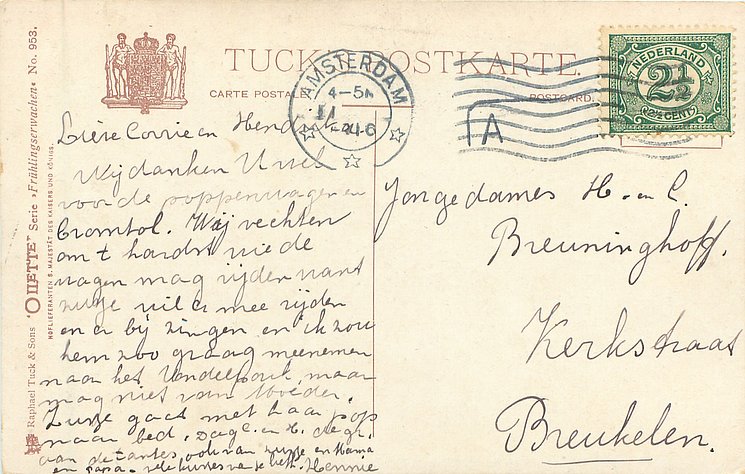 TUCK'S POSTKARTE.
CARTE POSTALE
POSTCARD.
AMSTERDAM
4-5N
A
NEDERLAND
2½
(2½ CENT)
Raphael Tuck & Sons "OILETTE" Serie »Frühlingserwachen« No. 953.
HOFLIEFERANTEN S. MAJESTÄT DES KAISERS UND KÖNIGS.
Lieve Corrie en
Wij danken U wel
voor de poppenwagen en
bromtol. Wij vechten
om t hardst wie de
wagen mag rijden want
Zusje wil er mee rijden
en er bij zingen en ik zou
hem zoo graag meenemen
naar het Vondelpark, maar
mag niet van Moeder.
Zusje gaat met haar pop
naar bed. Dag C. en H. de gr.
aan de tantes, ook van zusje en Mama
en papa. vele kusjes van je Hennie
Jongedames H. en C.
Breuninghoff.
Kerkstraat
Breukelen.